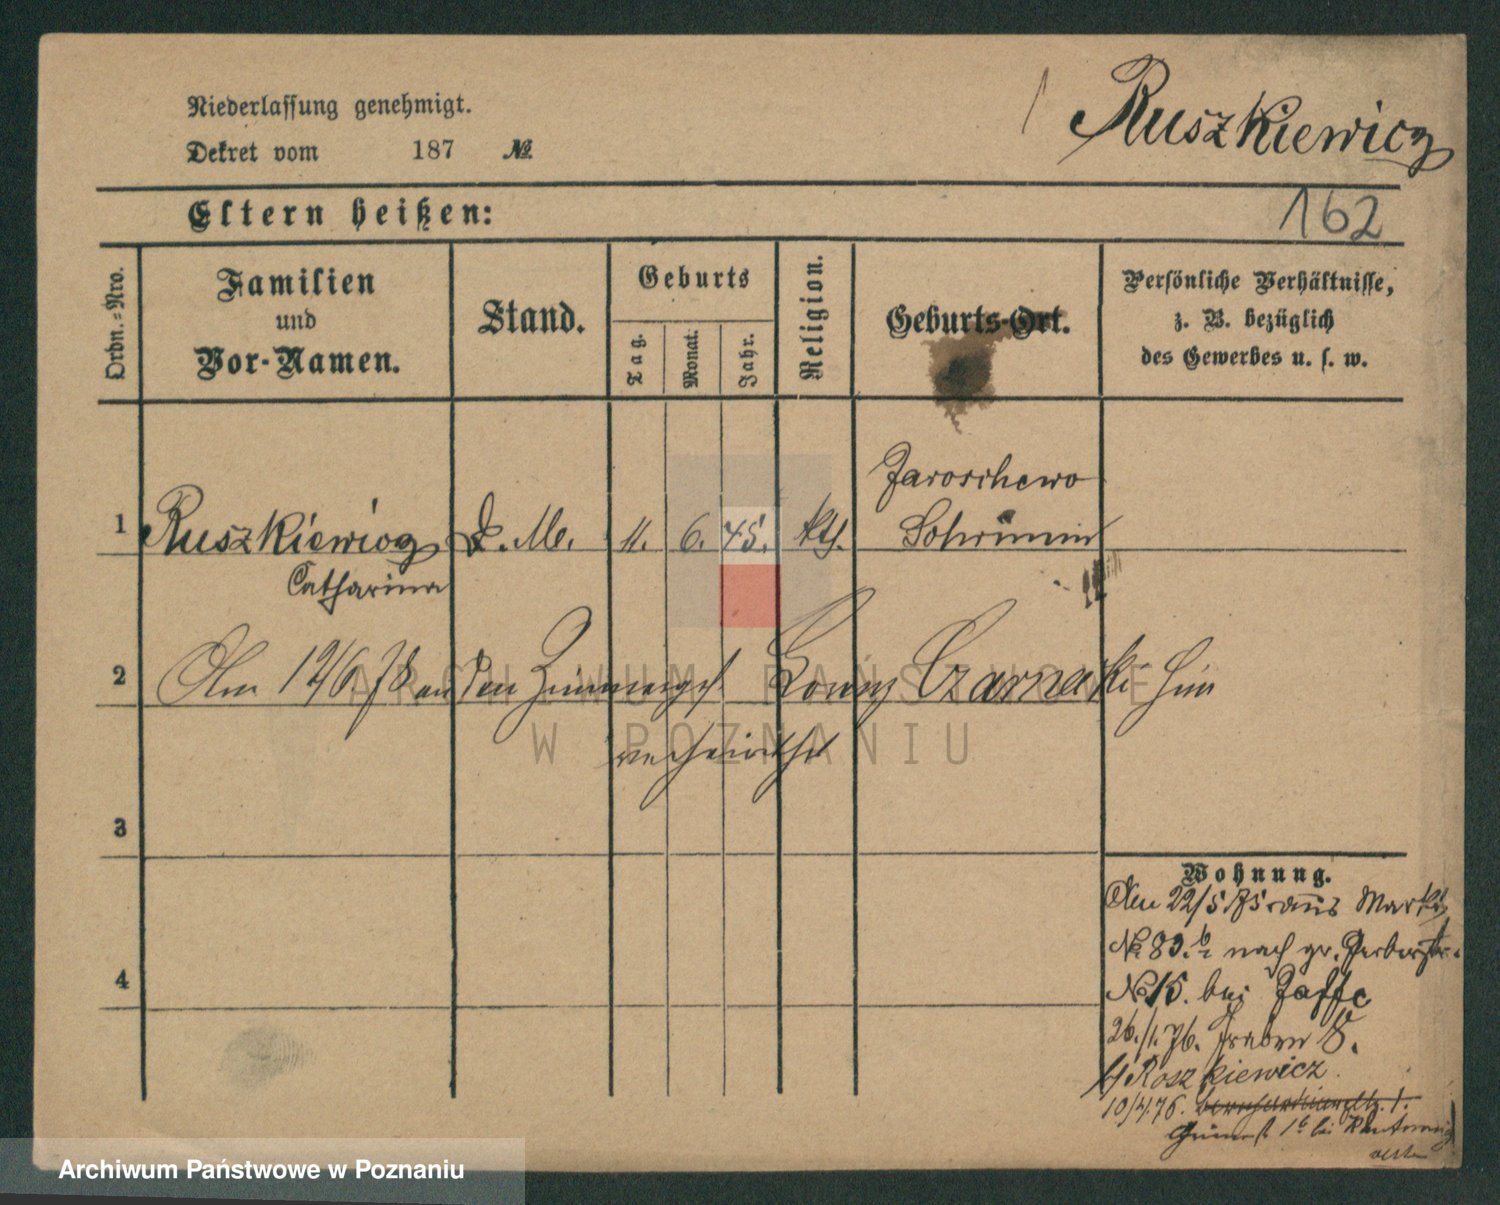 Niederlassung genehmigt.
Dekret vom 187 №
Ruszkiewicz
162
Eltern heißen:
Ordn.-Nro.
Familien
und
Vor-Namen.
Stand.
Geburts
Tag.
Monat.
Jahr.
Religion.
Geburts-Ort.
Persönliche Verhältnisse,
z. B. bezüglich
des Gewerbes u. s. w.
1 Ruszkiewicz D. M. 11. 6. 45. kth. Jaroschewo
Schrimm
Catharina
2 Am 12/6 78 an den Zimmerges. Czarnecki hier
verheirathet
3
4
Wohnung.
Den 22/5 75 aus Markt
№ 83. b nach gr. Gerberstr.
№ 15. bei Jaffe
26./1. 76. Graben 8.
Roszkiewicz
10/4. 76.
1 b bei
ARCHIWUM PAŃSTWOWE
W POZNANIU
Archiwum Państwowe w Poznaniu